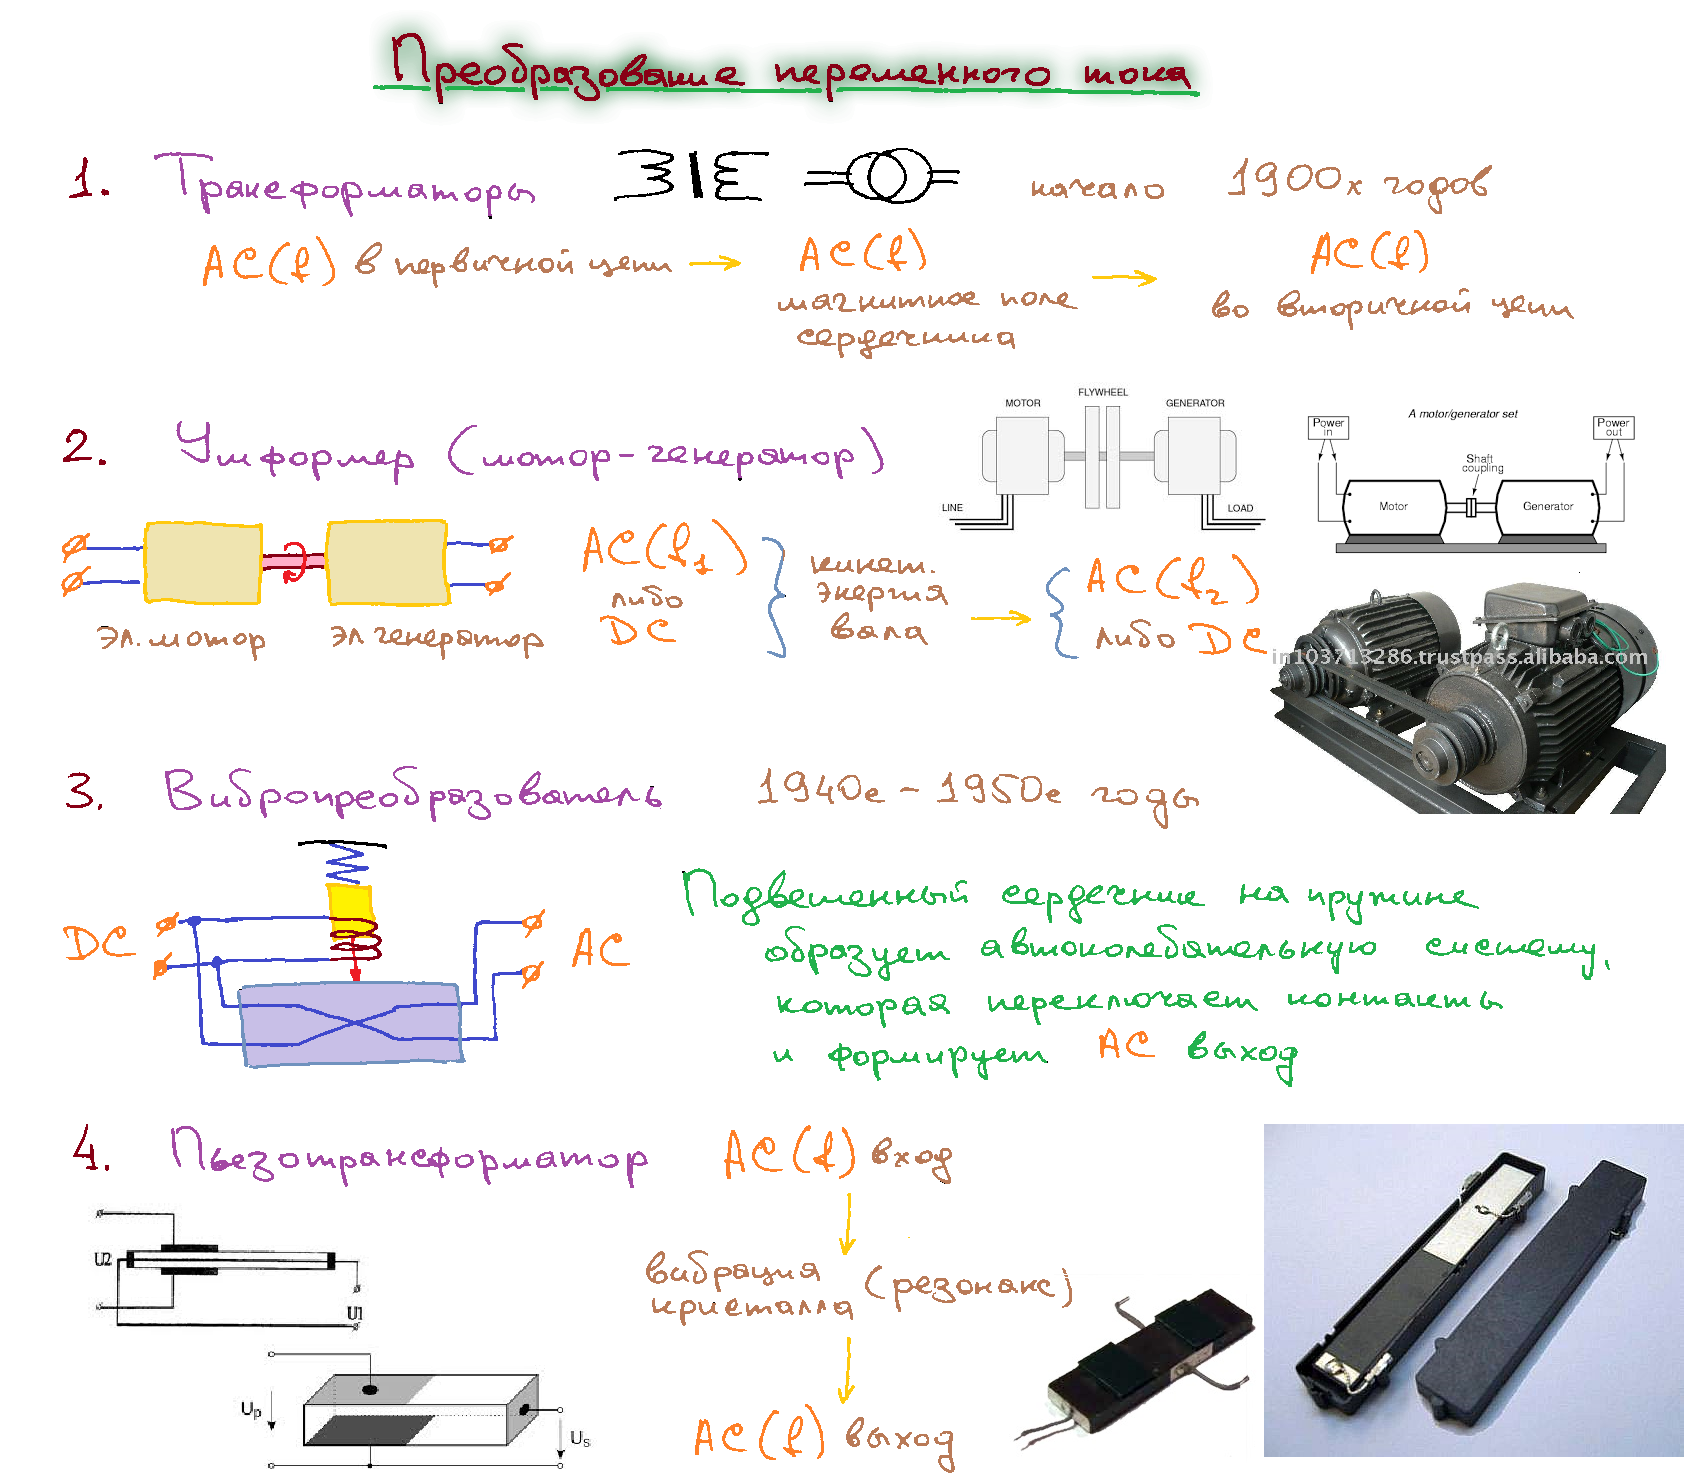 Преобразование переменного тока
1. Трансформаторы начало 1900х годов
AC(f) в первичной цепи → AC(f) → AC(f)
магнитное поле во вторичной цепи
сердечника
2. Умформер (мотор-генератор)
MOTOR FLYWHEEL GENERATOR
LINE LOAD
A motor/generator set
Power in Power out
Shaft coupling
Motor Generator
эл. мотор эл генератор
AC(f1) либо DC
кинет. энергия вала
→ AC(f2) либо DC
in103713286.trustpass.alibaba.com
3. Вибропреобразователь 1940е - 1950е годы
DC AC
Подвешенный сердечник на пружине
образует автоколебательную систему,
которая переключает контакты
и формирует AC выход
4. Пьезотрансформатор AC(f) вход
U2
U1
вибрация (резонанс)
кристалла
Up
Us
AC(f) выход